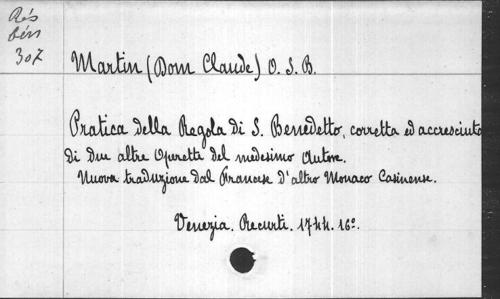 Rés
bén
307
Martin (Dom Claude) O. S. B.
Pratica della Regola di S. Benedetto, corretta ed accresciuta
di due altre Operette del medesimo Autore.
Nuova traduzione dal Francese d'altro Monaco Casinense.
Venezia. Recurti. 1744. 16º.